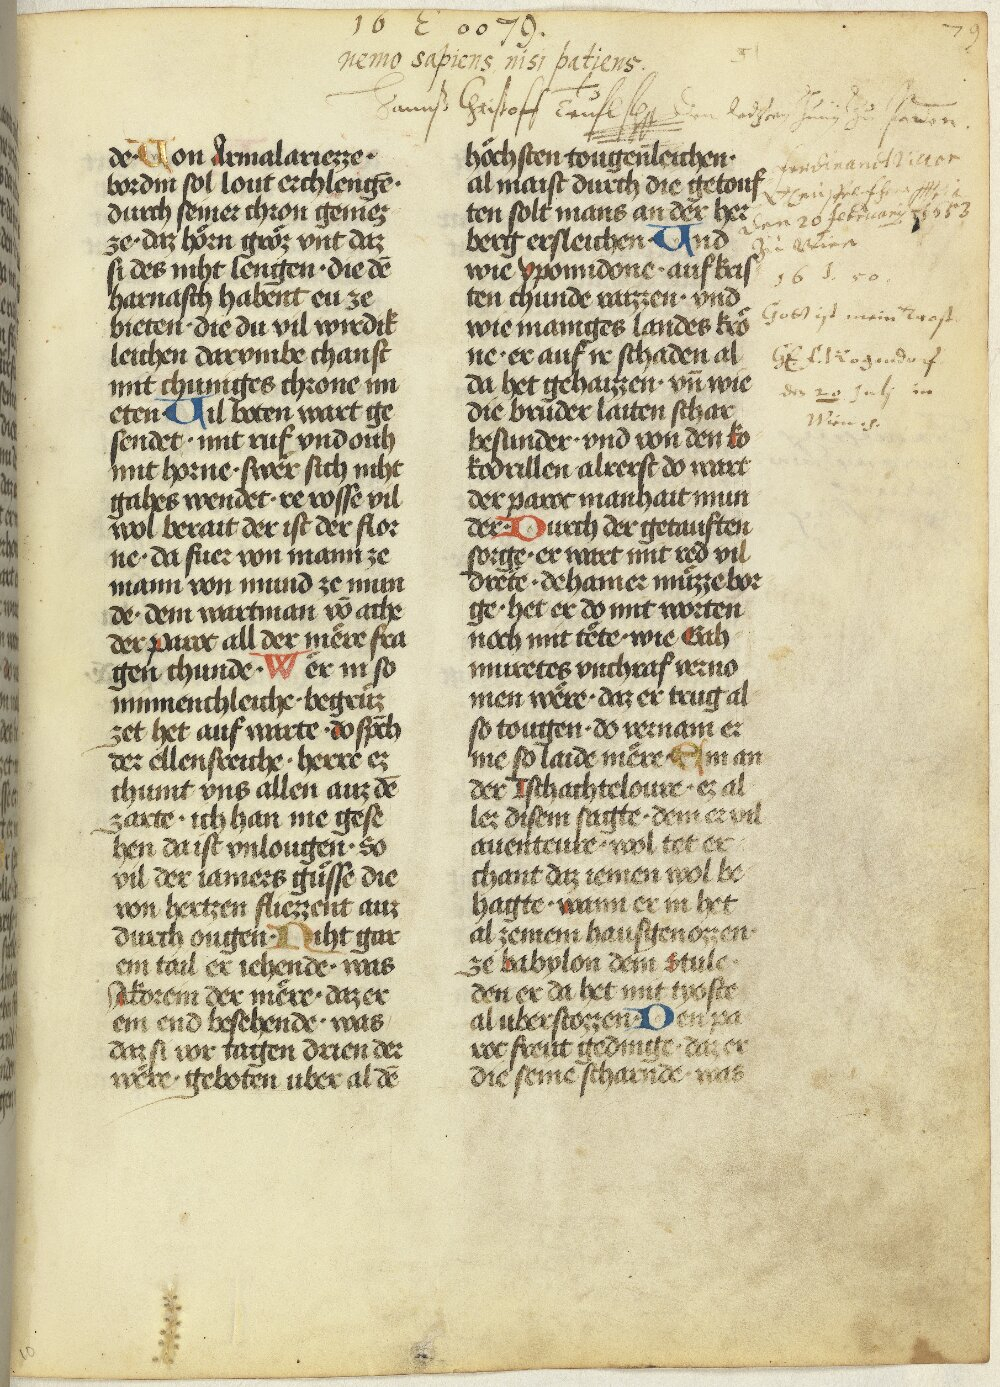 79
nemo sapiens, nisi patiens.
Hannß Christoff Teufl
de· Von Armalariezze·
vordin sol lout erchlenge̅·
durch seiner chron geniez
ze· daz hoͤrn groͤz vnt daz
si des niht lengen· die de̅
harnasch habent eu ze
bieten· die du vil wirdik
leichen darumbe chanst
mit chuniges chrone mi
eten· Vil boten wart ge
sendet· mit ruf vnd ouh
mit horne· swer sich niht
gahes wendet· ze rosse vil
wol berait der ist der flor
ne· da fuer von mann ze
mann von mund ze mun
de· dem wartman vo̅ ache
der paroc all der mere fra
gen chunde· Wer in so
minnenchleiche· begruͤz
zet het auf warte· do sp̅ch
der ellensreiche· herre ez
chumt vns allen auz de̅
zarte· ich han nie gese
hen da ist vnlougen· So
vil der iamers guͤsse die
von hertzen fliezzent auz
durch ougen· Niht gar
ein tail er iehende· was
Akorein der mere· daz er
ein end besehende· was
daz si vor tagen drien der
were· geboten uber al de̅
hoͤchsten tougenleichen·
al maist durch die getouf
ten solt mans an der her
berg ersleichen· Vnd
wie yponnidone· auf kris
ten chunde razzen· vnd
wie maniges landes kro
ne· er auf ir schaden al
da het gehaizzen· vn̅ wie
die bruͤder laiten schar
besunder· vnd von den ko
kodrillen alrerst do wart
der paroc manhait mun
der· Durch der getauften
sorge· er wart mit red vil
drete· dehainer muͤzze bor
ge· het er do mit worten
noch mit tete· wie Eah
muretes vnchraf verno
men were· daz er trug al
so tougen· do vernam er
nie so laide mere· Ein an
der Tschachteloure· ez al
lez disem sagte· dem er vil
auenteure· wol tet er
chant daz iemen wol be
hagte· wann er in het
al zeinem hausgenozzen·
ze babylon dem Stule·
den er da het mit tyoste
al uberstozzen· Den pa
roc freut gedinge· daz er
die seine scharnde· was
Ferdinandt
den 20 Februarij 1553
Zu Wien
16 50.
Gott ist mein Trost
den 20 July in
Wien
10